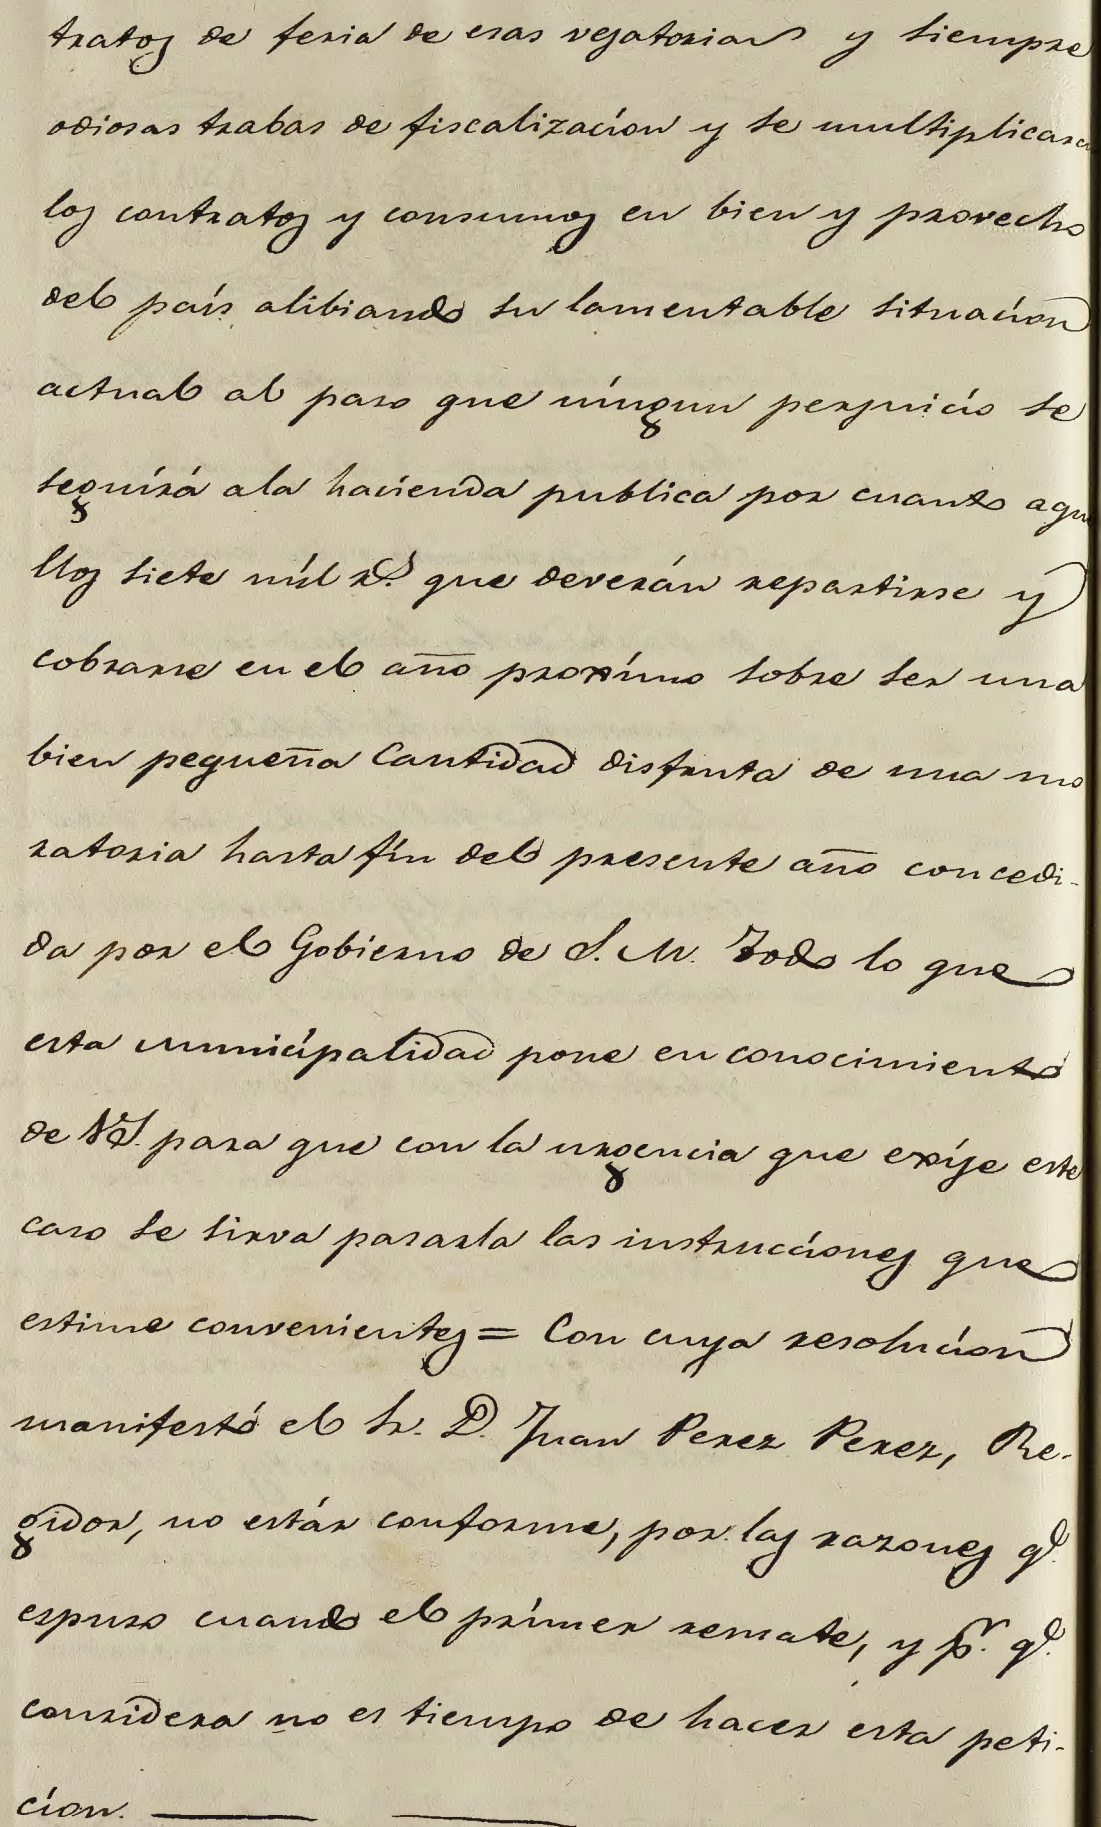 tratos de feria de esas vejatorias y siempre
odiosas trabas de fiscalizacíon y se multiplicara
los contratos y consumos en bien y provecho
del país alibiando su lamentable situacíon
actual al paso que níngun perjuicio se
seguírá ala hacienda publica por cuanto aque
llos siete míl r.s que deverán repartirse y
cobrarse en el año proxímo sobre ser una
bien pequeña Cantidad disfruta de una mo
ratoria hasta fín del presente año concedi-
da por el Gobierno de S. M. Todo lo que
esta municípalidad pone en conocimiento
de VS. para que con la urgencia que exíje este
caso se sirva pasarla las instruccíones que
estime convenientes = Con cuya resolucíon
manifestó el Sr. D. Juan Perez Perez, Re-
gidor, no estár conforme, por las razones q.e
espuso cuando el prímer remate, y p.r q.e
considera no es tiempo de hacer esta peti-
cíon.